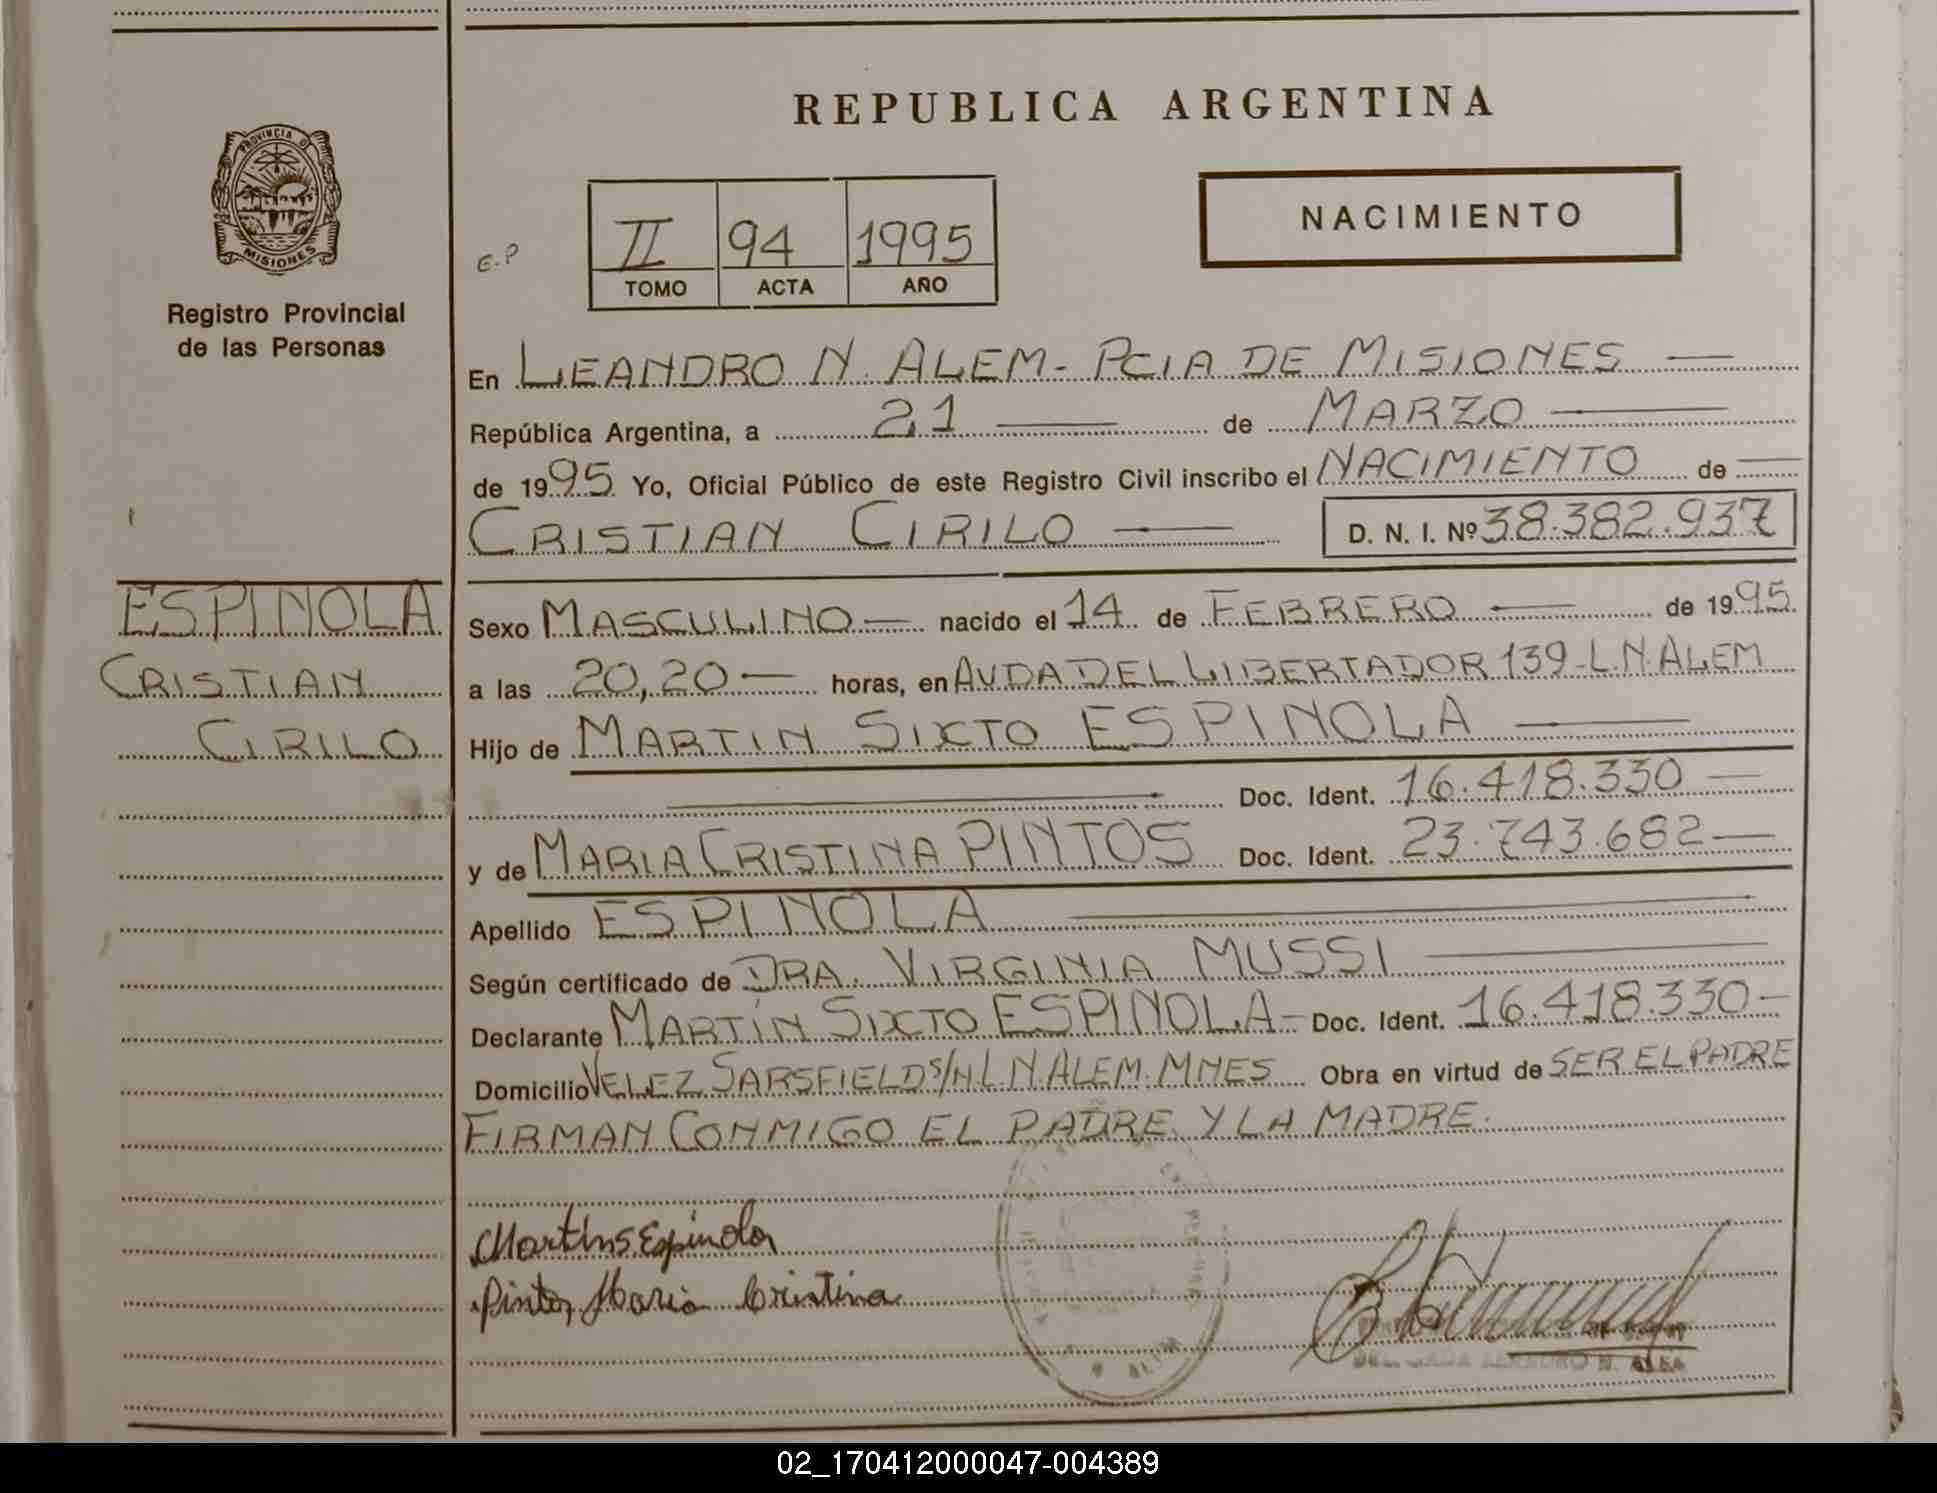 REPUBLICA ARGENTINA
PROVINCIA D
MISIONES
Registro Provincial
de las Personas
E.P
II 94 1995
TOMO ACTA AÑO
NACIMIENTO
En LEANDRO N. ALEM - PCIA DE MISIONES
República Argentina, a 21 de MARZO
de 1995 Yo, Oficial Público de este Registro Civil inscribo el NACIMIENTO de
CRISTIAN CIRILO D. N. I. Nº 38.382.937
ESPINOLA
CRISTIAN
CIRILO
Sexo MASCULINO - nacido el 14 de FEBRERO de 1995
a las 20,20 horas, en AVDA DEL LIBERTADOR 139 - L.N. ALEM
Hijo de MARTIN SIXTO ESPINOLA
Doc. Ident. 16.418.330
y de MARIA CRISTINA PINTOS Doc. Ident. 23.743.682
Apellido ESPINOLA
Según certificado de DRA. VIRGINIA MUSSI
Declarante MARTÍN SIXTO ESPINOLA - Doc. Ident. 16.418.330 -
Domicilio VELEZ SARSFIELD S/N L.N. ALEM. MNES Obra en virtud de SER EL PADRE
FIRMAN CONMIGO EL PADRE Y LA MADRE.
Martin S Espinola
Pintos Maria Cristina
02_170412000047-004389